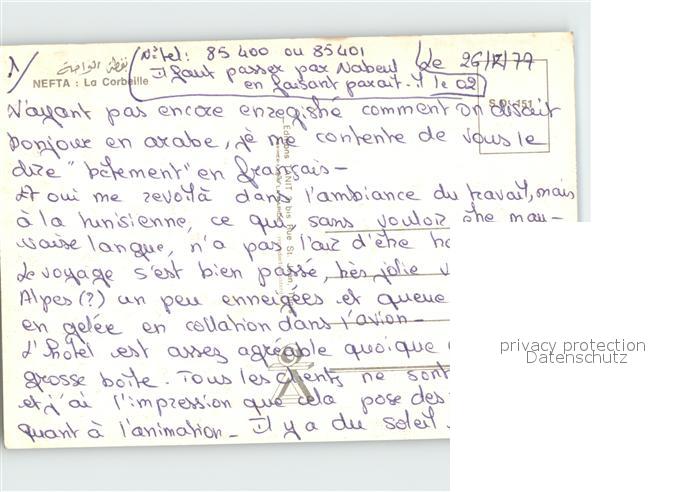 1/
نفطة الواحة
NEFTA : La Corbeille
N° tel : 85 400 ou 85401
Il faut passer par Nabeul
en faisant parait-il le 02
Le 26/12/77
S.D. 151
N'ayant pas encore enregistré comment on disait
bonjour en arabe, je me contente de vous le
dire "bêtement" en français -
Et oui me revoilà dans l'ambiance du travail, mais
à la tunisienne, ce qui, sans vouloir être mau-
vaise langue, n'a pas l'air d'être
Le voyage s'est bien passé, très jolie
Alpes (?) un peu enneigées et queue
en gelée en collation dans l'avion -
L'hotel est assez agréable quoique
grosse boîte. Tous les clients ne sont
et j'ai l'impression que cela pose des
quant à l'animation - Il y a du soleil
Editions TANIT bis Rue St. Jean
privacy protection
Datenschutz